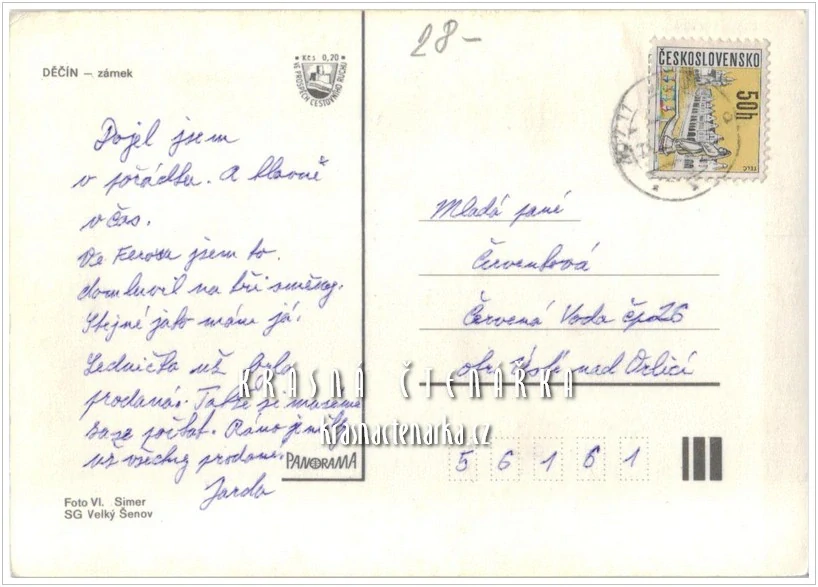 28-
DĚČÍN – zámek
Kčs 0,20
VE PROSPĚCH CESTOVNÍHO RUCHU
ČESKOSLOVENSKO
50h
TELČ
Dojel jsem
v pořádku. A hlavně
včas.
Ve Ferosa jsem to
domluvil na tři směny.
Stejné jako mám já.
Lednička už byla
prodaná. Takže si musíme
zase počkat. Ráno je měli,
už všechny prodané.
Jarda
Mladá paní
Červenková
Červená Voda čp 26
okr. Ústí nad Orlicí
56161
KRÁSNÁ ČTENÁŘKA
krasnactenarka.cz
PANORAMA
Foto Vl. Simer
SG Velký Šenov